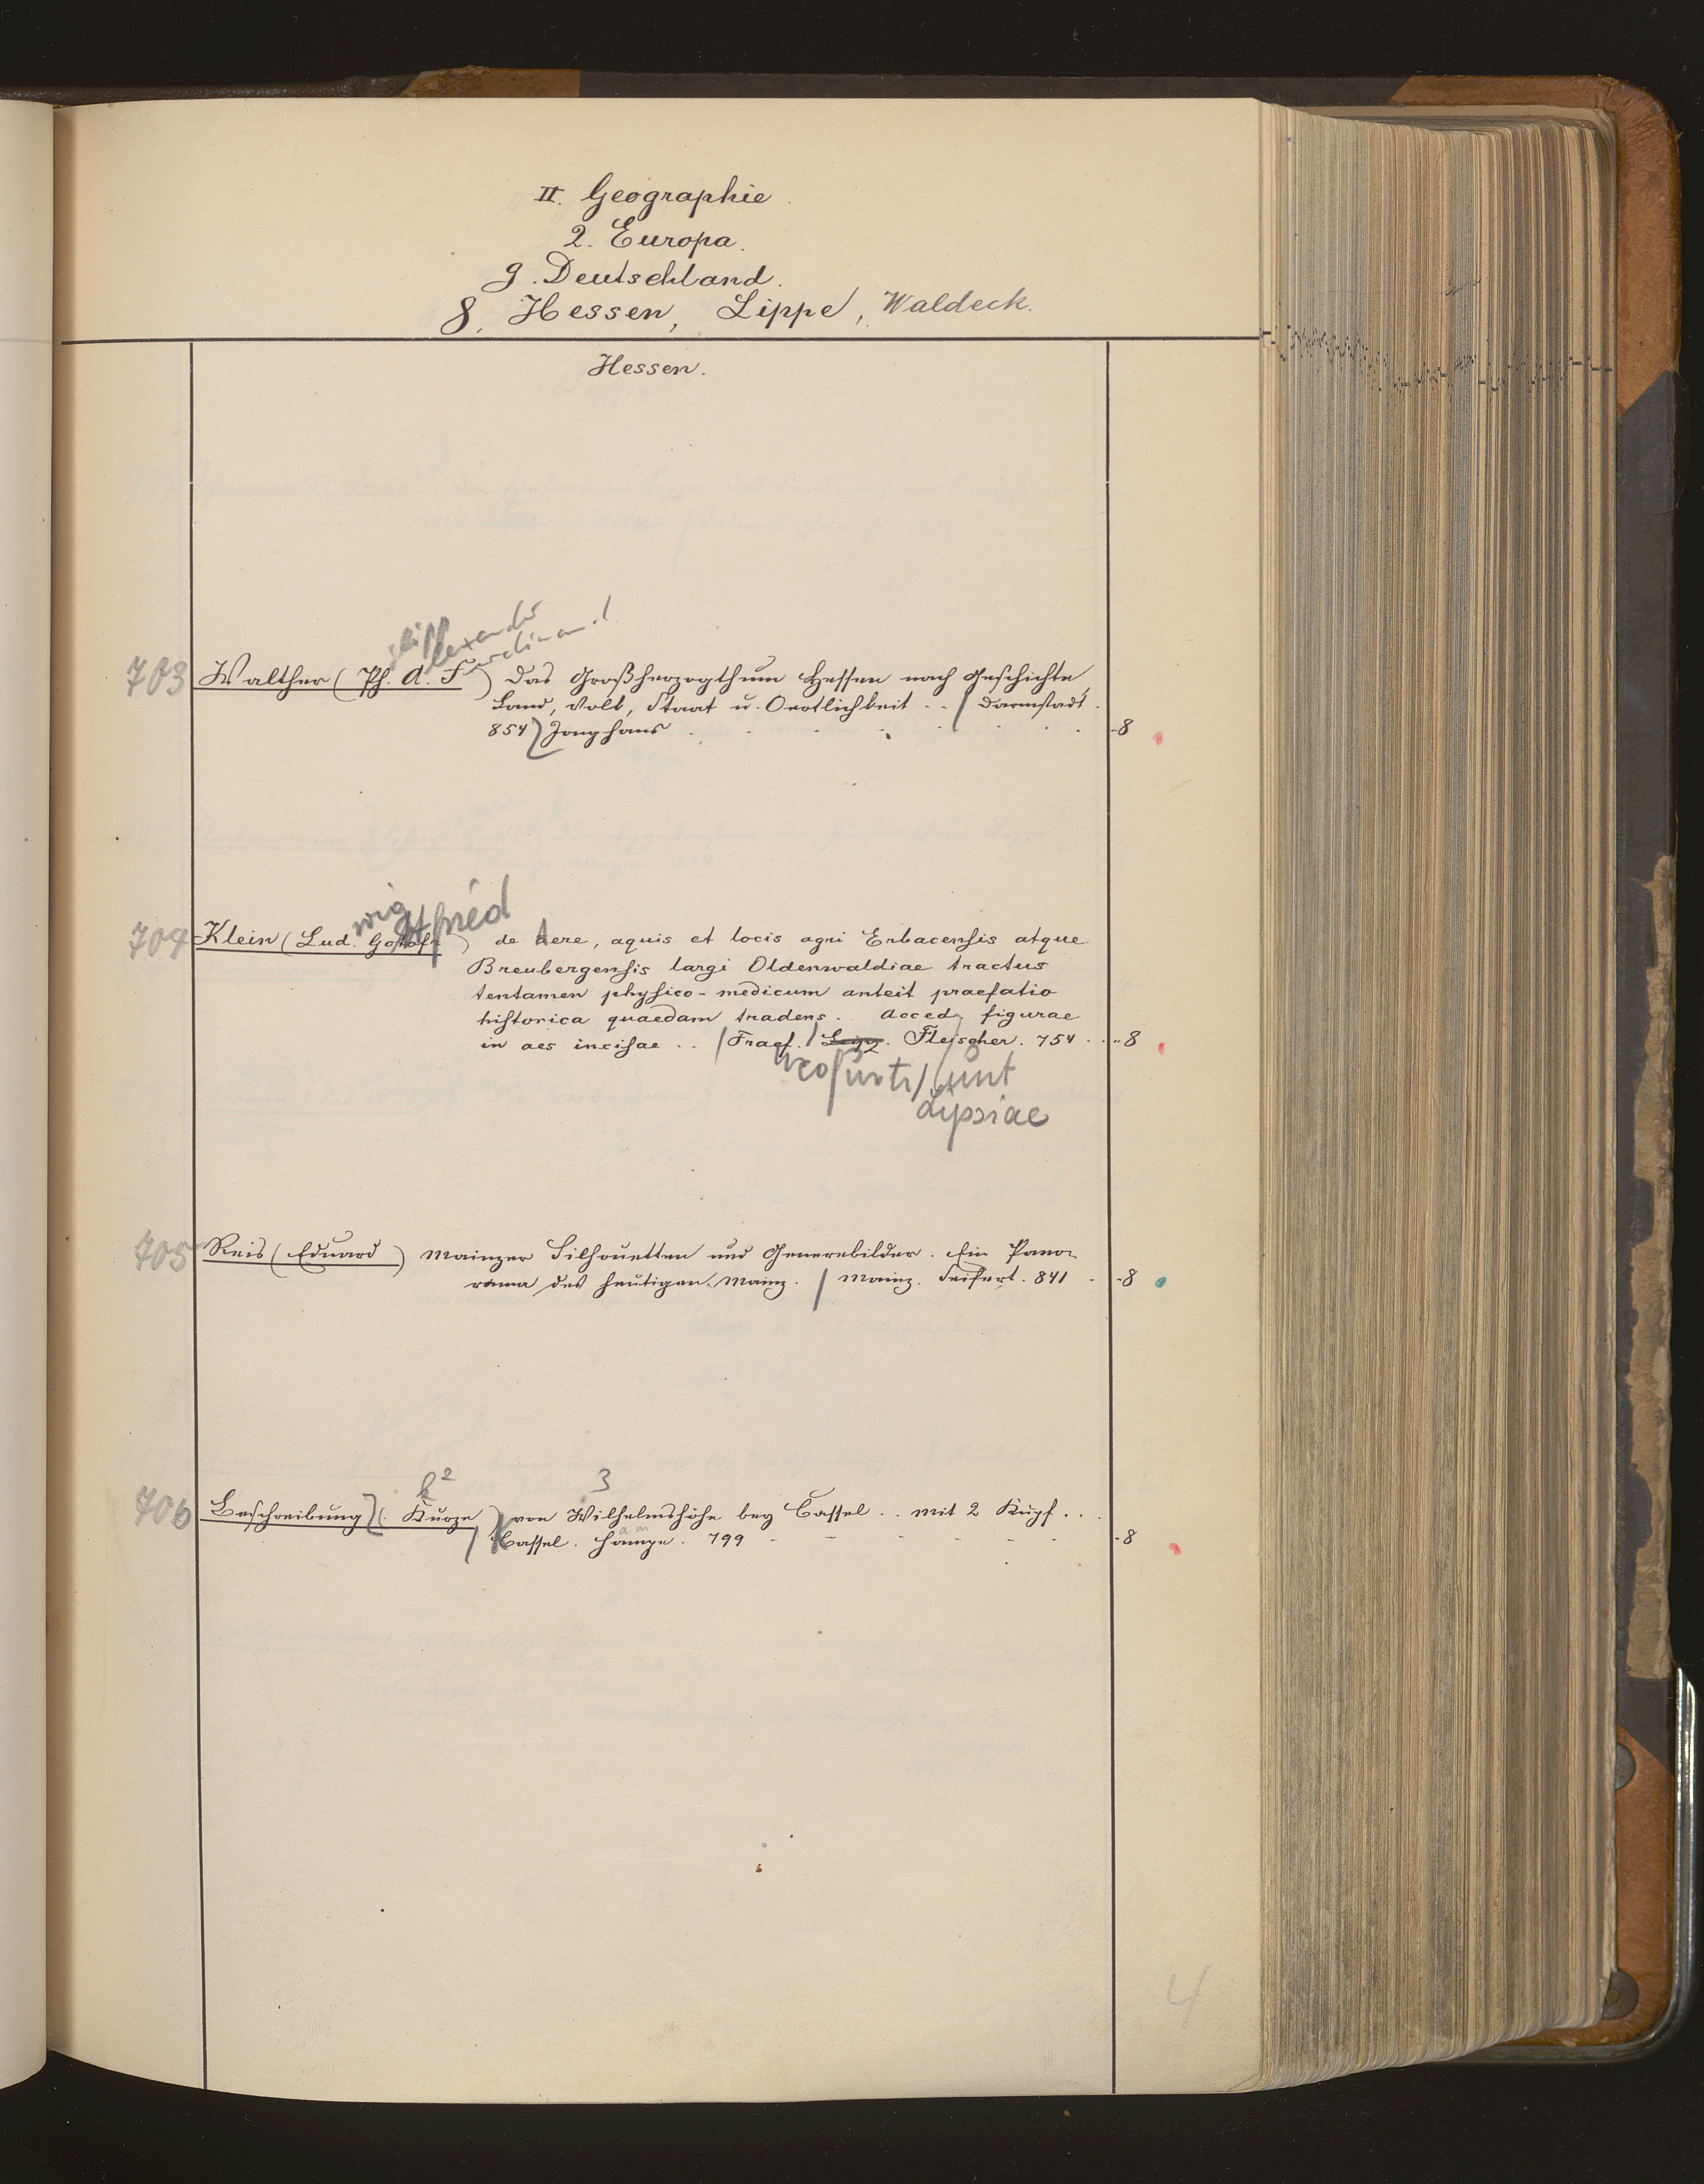 II. Geographie.
2. Europa.
g. Deutschland.
8. Hessen, Lippe, Waldeck.
Hessen.
ilipp lexander erdinand
703 Walther (Ph. A. F.) Das Großherzogthum Hessen nach Geschichte,
Land, Volk, Staat u. Oertlichkeit .. / Darmstadt.
854 Jonghaus 8
wig ttfried
704 Klein (Lud. Gottofr.) de Aere, aquis et locis agri Erbacensis atque
Breubergensis largi Oldenwaldiae tractus
tentamen physico-medicum anteit praefatio
historica quaedam tradens. Acced. figurae
in aes incisae .. / Fracf. / Leipz. Fleischer. 754 8
ncofurti / sunt
Lipsiae
705 Reis (Eduard) Mainzer Silhouetten und Genrebilder. Ein Pano-
rama des heutigen Mainz. / Mainz. Seifert. 841 - 8
k 2 3
706 Beschreibung (Kurze) von Wilhelmshöhe bey Cassel .. mit 2 Kupf. ..
/ Cassel. Hampe. 799 - 8
4